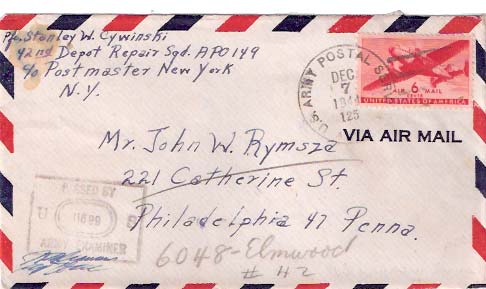 Pfc. Stanley W. Cywinski
42nd Depot Repair Sqd. APO 149
c/o Postmaster New York
N.Y.
U.S. ARMY POSTAL SERV
DEC
7
1944
AIR 6 MAIL
CENTS
UNITED STATES OF AMERICA
VIA AIR MAIL
Mr. John W. Rymsza
221 Catherine St.
Philadelphia 47 Penna.
6048-Elmwood
# H2
PASSED BY
U S
ARMY EXAMINER